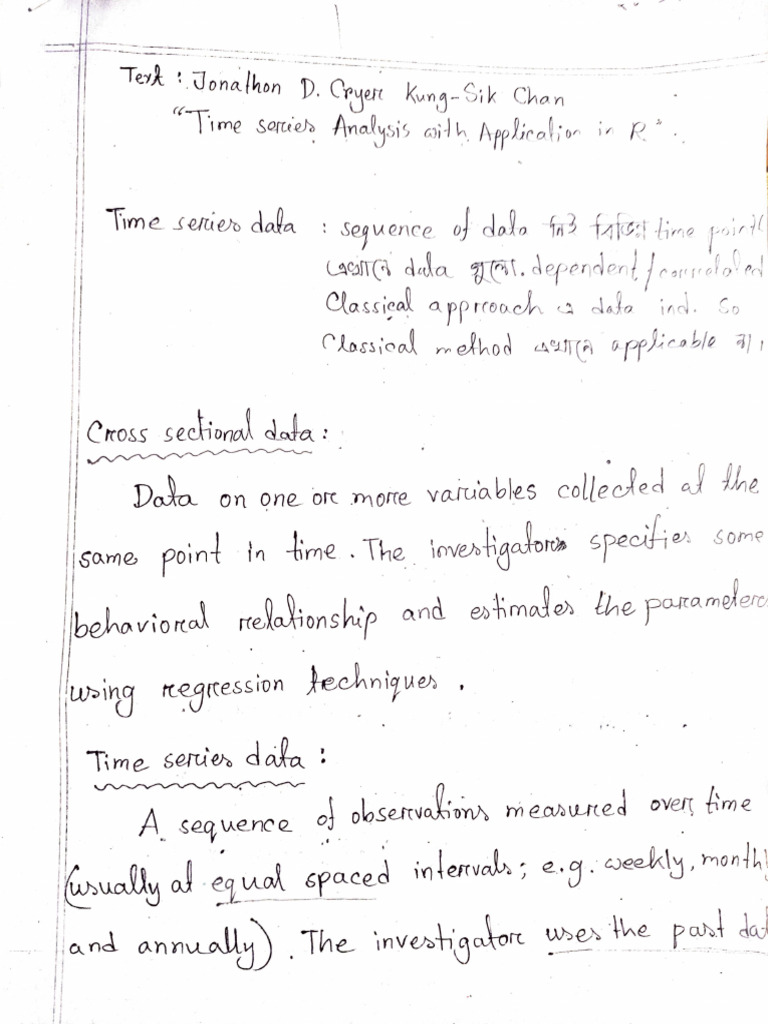 Text : Jonathon D. Cryer Kung-Sik Chan
"Time series Analysis with Application in R".
Time series data : sequence of data time point
এখানে data গুলো. dependent / correlated
Classical approach এ data ind. So
Classical method এখানে applicable না।
Cross sectional data :
Data on one or more variables collected at the
same point in time. The investigator specifies some
behavioral relationship and estimates the parameters
using regression techniques.
Time series data :
A sequence of observations measured over time
(usually at equal spaced intervals; e.g. weekly, monthly
and annually). The investigator uses the past dat